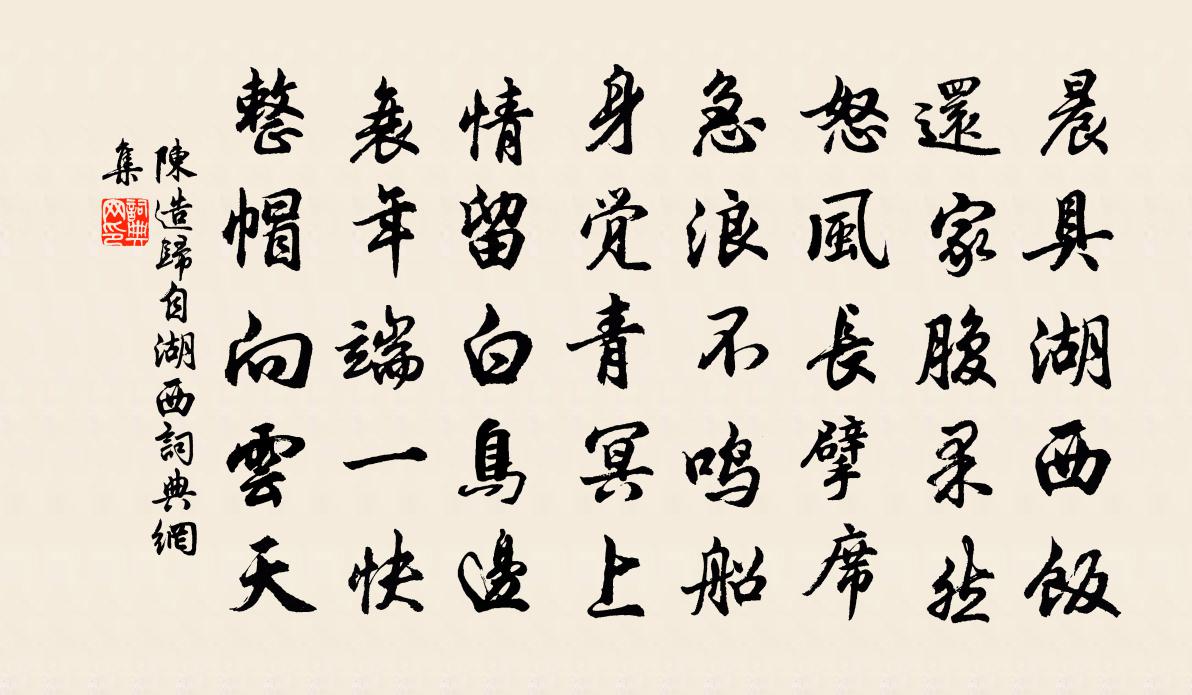 晨具湖西飯
還家腹果然
怒風長擘席
急浪不鳴船
身覺青冥上
情留白鳥邊
衰年端一快
整帽向雲天
陳造歸自湖西詞典網
集
詞典
网印